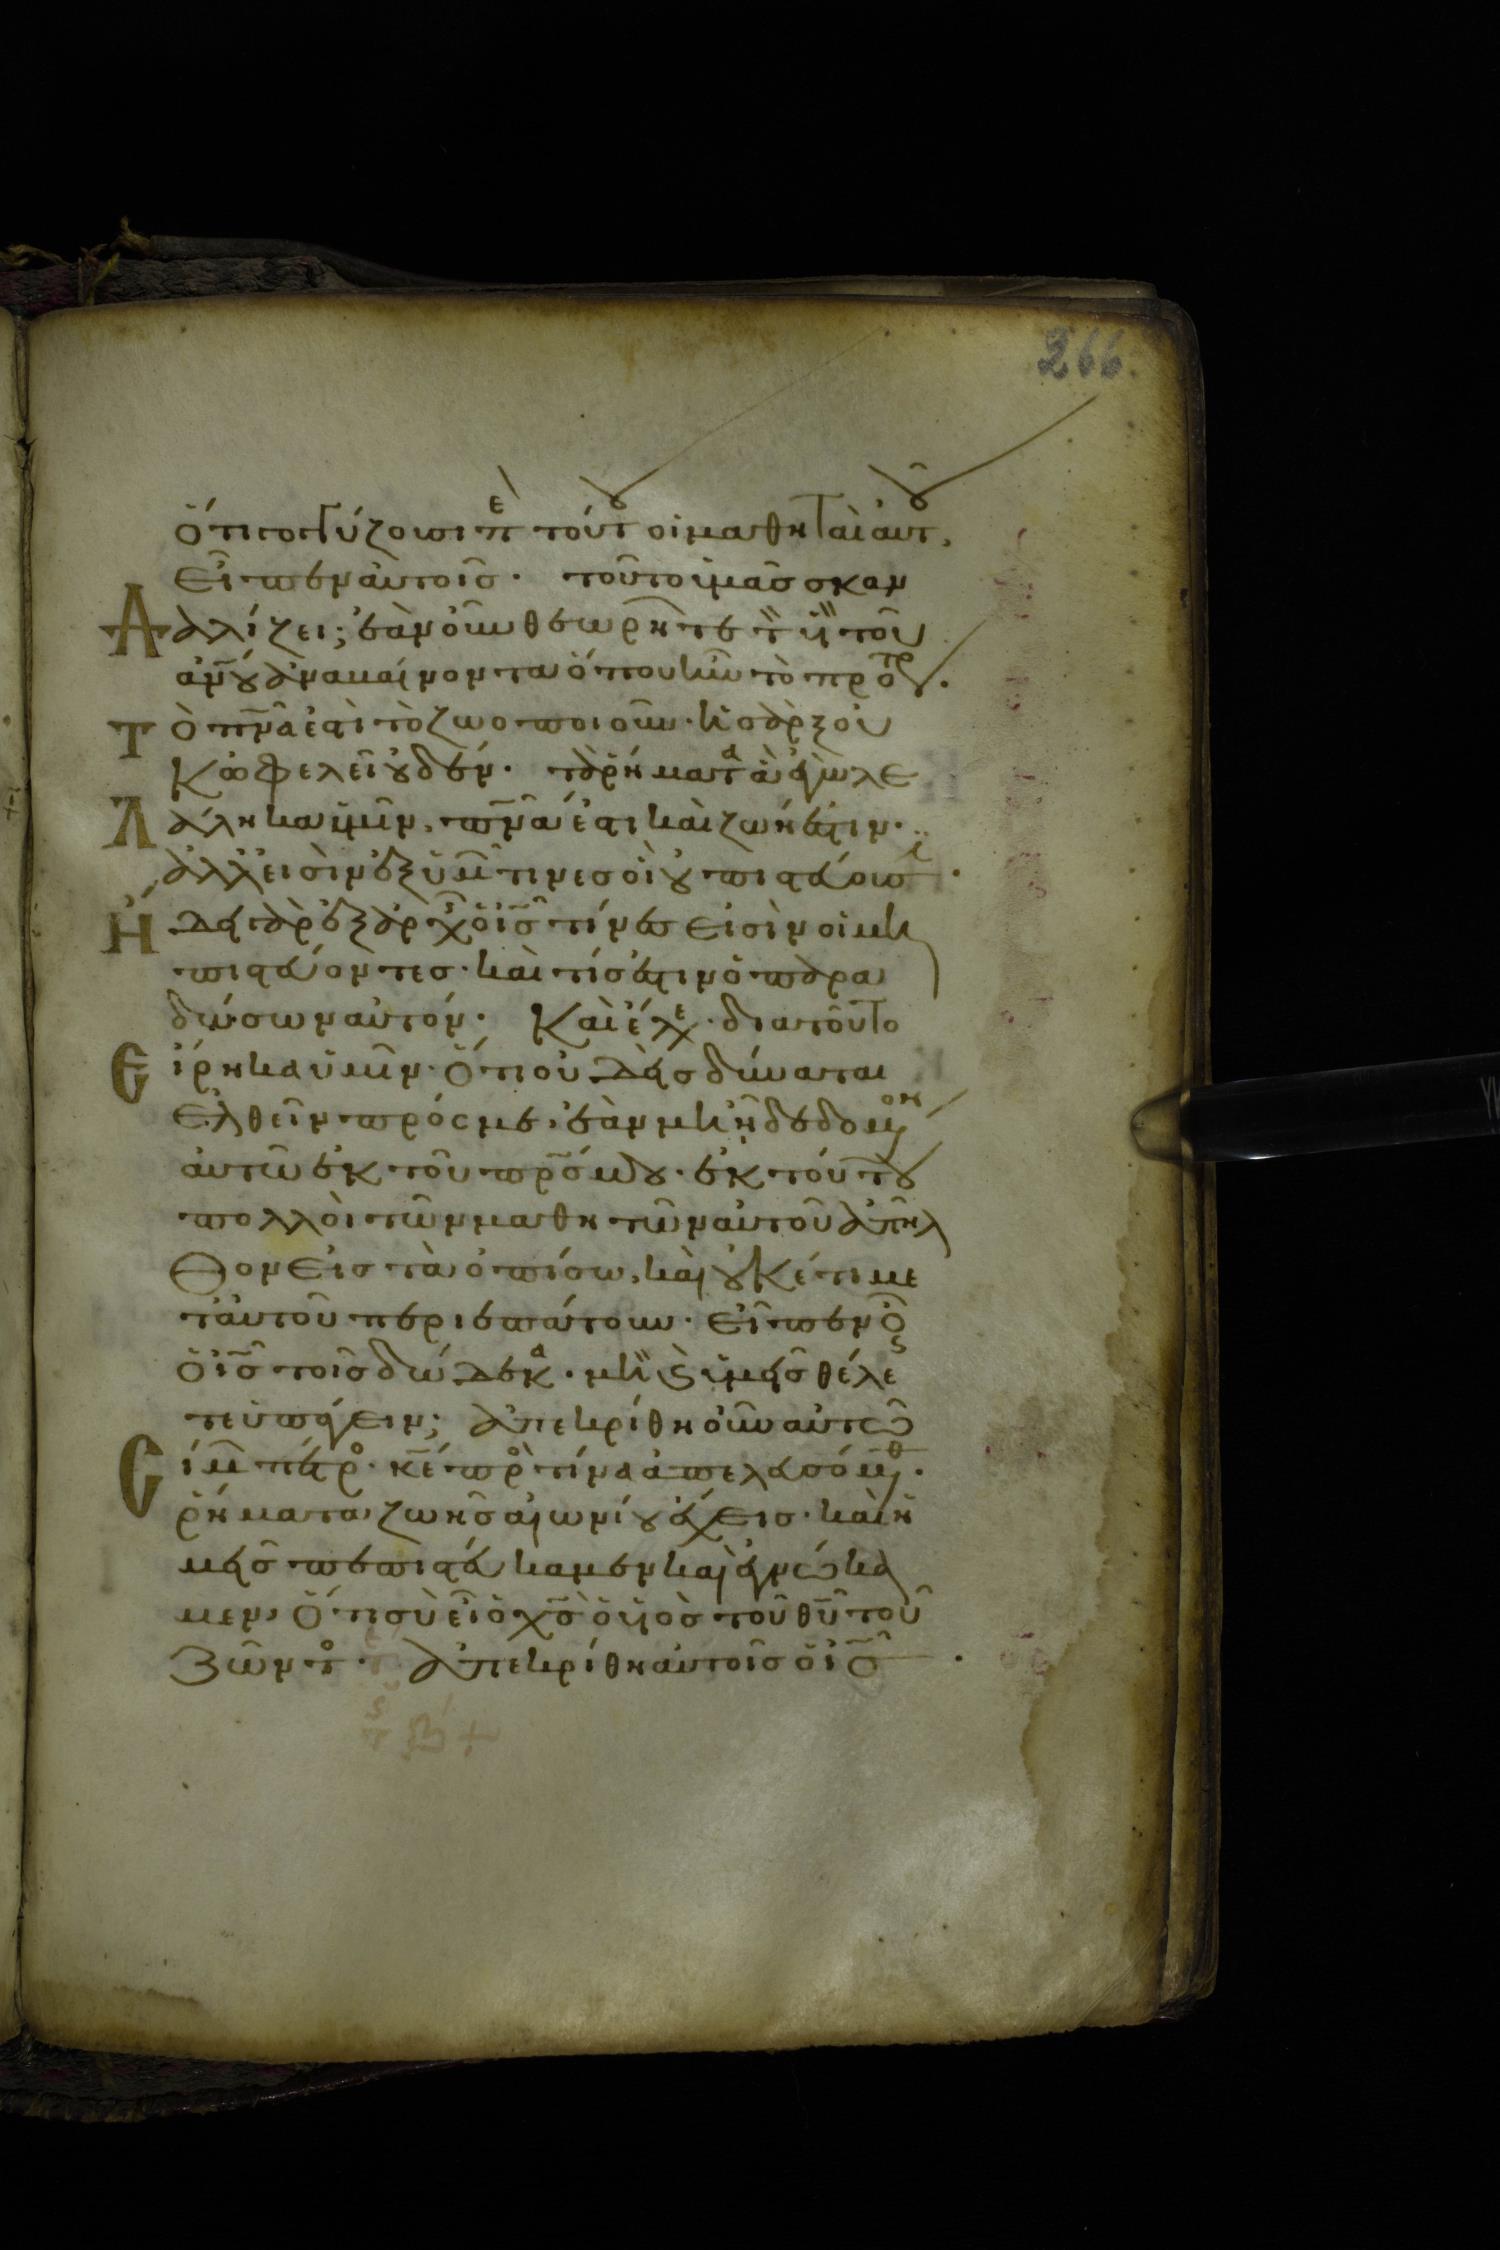 266.
ὅτι γογγύζουσι περὶ τούτου οἱ μαθηταὶ αὐτοῦ,
εἶπεν αὐτοῖς. τοῦτο ὑμᾶς σκαν
Δαλίζει; ἐὰν οὖν θεωρῆτε τὸν υἱὸν τοῦ
ἀν̅ου ἀναβαίνοντα ὅπου ἦν τὸ πρότερον.
Τὸ πν̅α ἐστὶ τὸ ζωοποιοῦν. ἡ σὰρξ οὐ
κ ὠφελεῖ οὐδέν. τὰ ῥήματα ἃ ἐγὼ λε
λάληκα ὑμῖν, πν̅α ἐστι καὶ ζωή ἐστιν.
ἀλλ' εἰσὶν ἐξ ὑμῶν τινες οἳ οὐ πιστεύουσιν.
Ἤδει γὰρ ἐξ ἀρχῆς ὁ ι̅ς̅ τίνες εἰσὶν οἱ μὴ
πιστεύοντες. καὶ τίς ἐστιν ὁ παρα
δώσων αὐτόν. καὶ ἔλεγε. δια τοῦτο
Εἴρηκα ὑμῖν. ὅτι οὐδεὶς δύναται
ἐλθεῖν πρός με. ἐὰν μὴ ᾖ δεδομένον
αὐτῶ ἐκ τοῦ πρ̅ς μου. ἐκ τούτου
πολλοὶ τῶν μαθητῶν αὐτοῦ ἀπῆλ
θον εἰς τὰ ὀπίσω, καὶ οὐκέτι με
τ' αὐτοῦ περιεπάτουν. εἶπεν οὖν
ὁ ι̅ς̅ τοῖς δώδεκα. μὴ καὶ ὑμεῖς θέλε
τε ὑπάγειν; ἀπεκρίθη οὖν αὐτῶ
Σίμων πέτρος. κ̅ε̅ πρὸς τίνα ἀπελευσόμεθα.
ῥήματα ζωῆς αἰωνίου ἔχεις. καὶ ἡ
μεῖς πεπιστεύκαμεν καὶ ἐγνώκα
μεν, ὅτι σὺ εἶ ὁ χ̅ς̅ ὁ υἱὸς τοῦ θ̅υ̅ τοῦ
ζῶντος. ἀπεκρίθη αὐτοῖς ὁ ι̅ς̅.